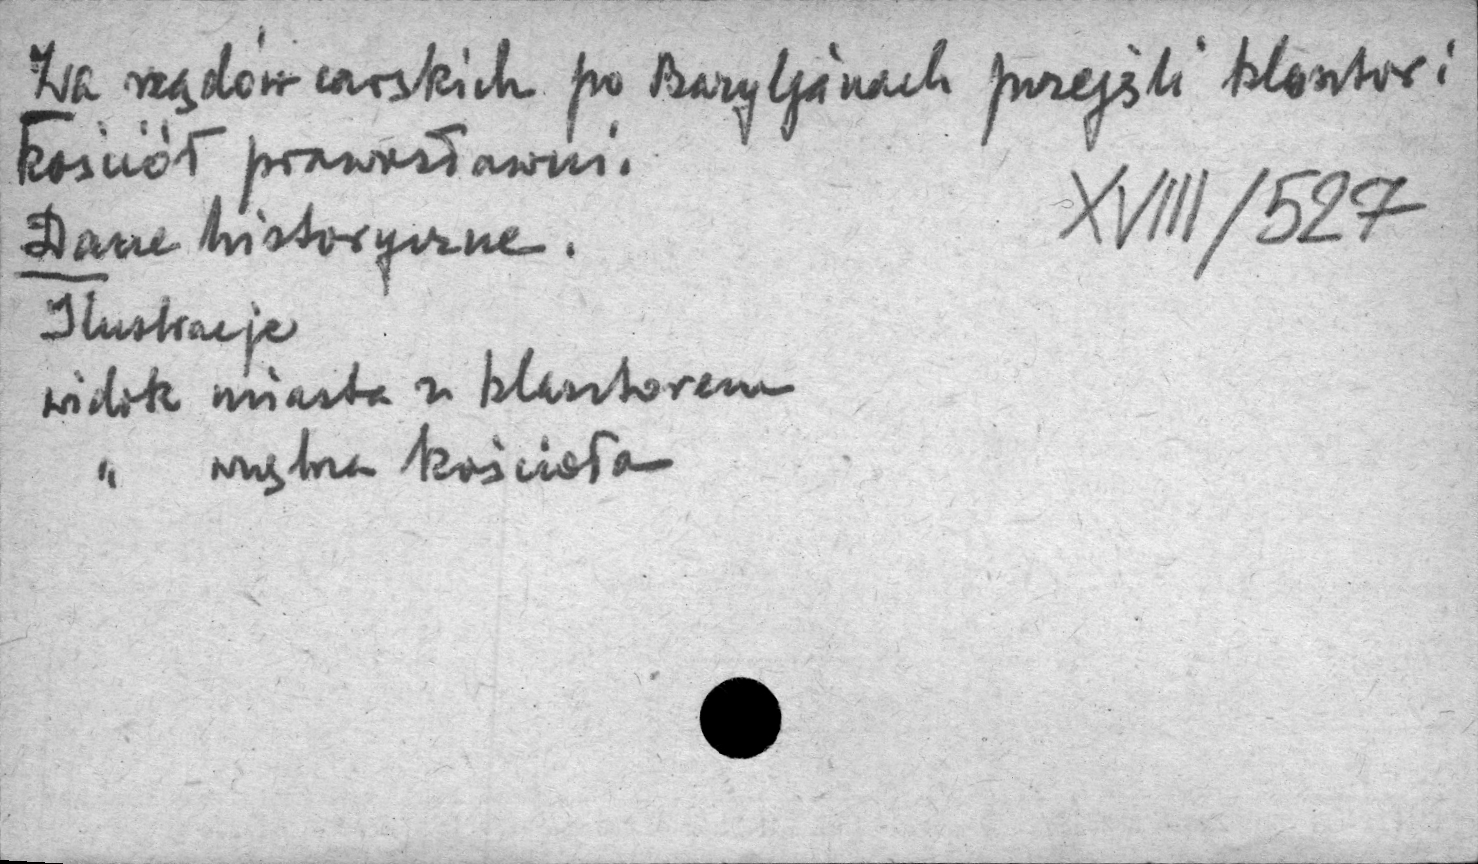 Za rządów carskich po Bazyljanach przejęli klasztor i
kościół prawosławni.
XVIII/527
Dane historyczne.
Ilustracje
widok miasta z klasztorem
" wnętrza kościoła